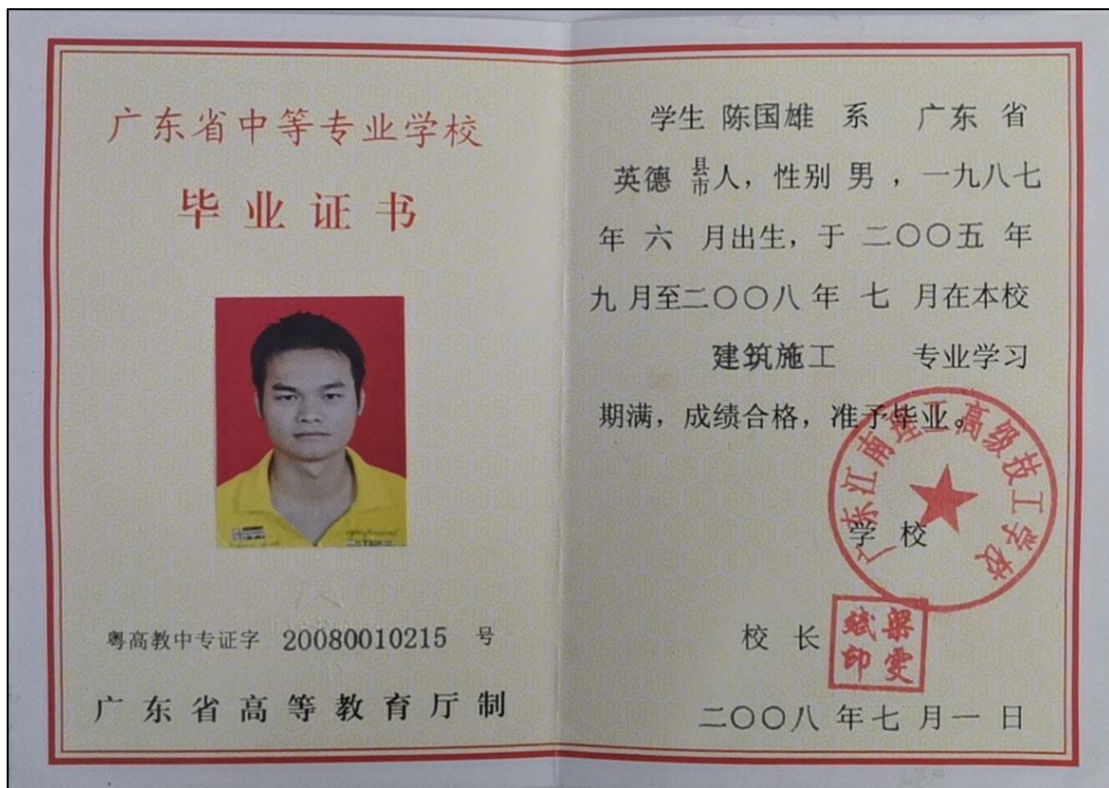 广东省中等专业学校
毕业证书
粤高教中专证字 20080010215 号
广东省高等教育厅制
学生 陈国雄 系 广东 省
英德 县市人，性别 男 ，一九八七
年 六 月出生，于 二〇〇五 年
九 月至二〇〇八 年 七 月在本校
建筑施工 专业学习
期满，成绩合格，准予毕业。
广东江南理工高级技工学校
学校
校 长
梁雯
斌印
二〇〇八 年 七 月 一 日